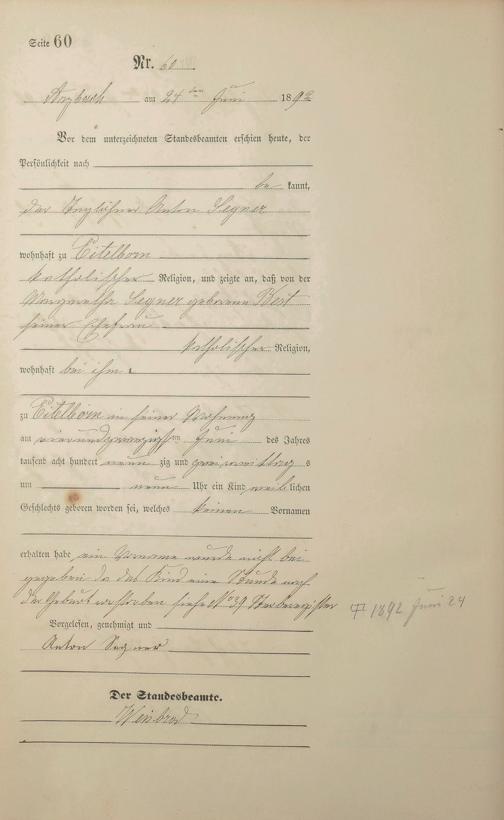 Seite 60
Nr. 60
Arzbach am 24 ten Juni 1892
Vor dem unterzeichneten Standesbeamten erschien heute, der
Persönlichkeit nach
be kannt,
der Taglöhner Anton Segner
wohnhaft zu Eitelborn
katholischer Religion, und zeigte an, daß von der
Margaretha Segner geborene Best
seiner Ehefrau
katholischer Religion,
wohnhaft bei ihm
zu Eitelborn in seiner Wohnung
am vierundzwanzigsten Juni des Jahres
tausend acht hundert neun zig und zwei mittags
um neun Uhr ein Kind weiblichen
Geschlechts geboren worden sei, welches keinen Vornamen
erhalten habe, ein Vorname wurde nicht bei
gegeben da das Kind eine Stunde nach
der Geburt verstorben siehe No 39 Sterberegister
1892 Juni 24
Vorgelesen, genehmigt und
Anton Segner
Der Standesbeamte.